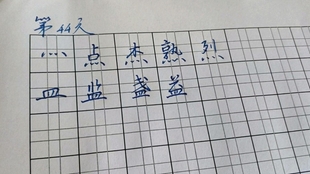 第44天
灬点杰熟烈
皿监盏益